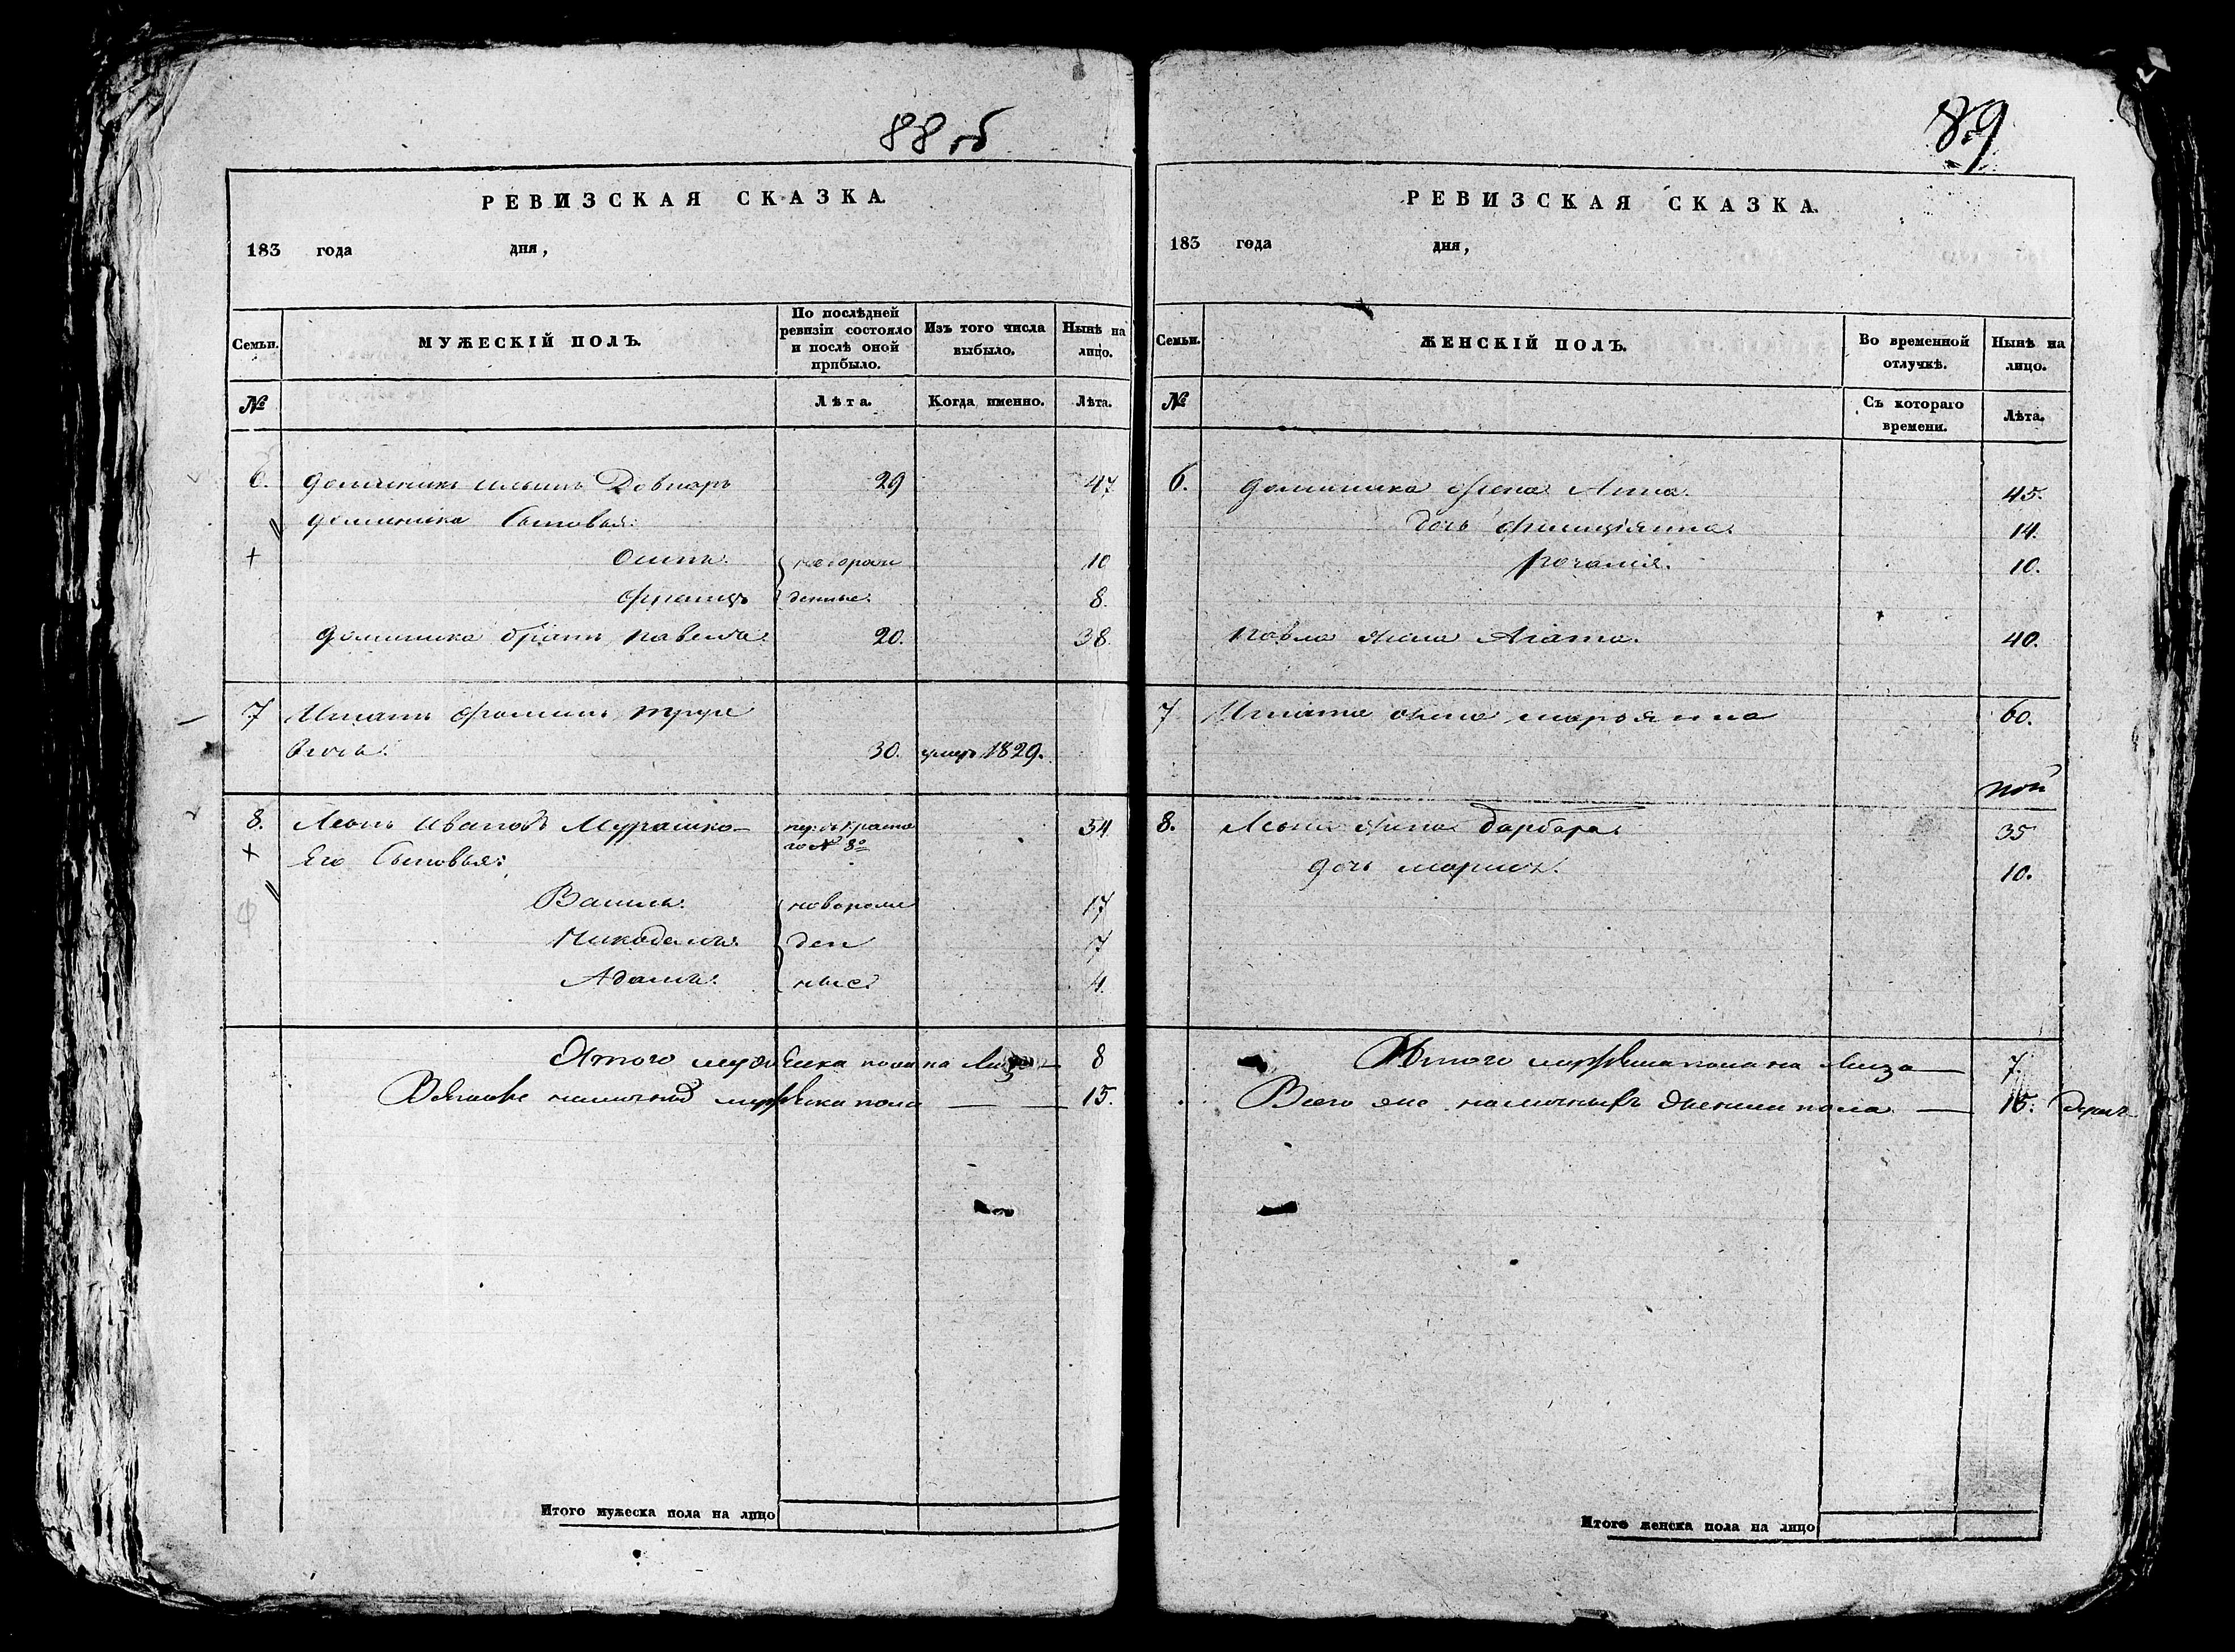 88 об
РЕВИЗСКАЯ СКАЗКА.
183 года дня,
Семьи. МУЖЕСКІЙ ПОЛЪ. По послѣдней ревизіи состояло и послѣ оной прибыло. Изъ того числа выбыло. Нынѣ на лицо.
№ Лѣта. Когда именно. Лѣта.
6. Доминикъ Ильинъ Довнаръ 29 47
Доминика Сыновья:
Осипъ новорож 10
Францъ денные 8.
Доминика братъ Павелъ 20. 38
7 Игнатъ Фоминъ
30. умеръ 1829.
8. Леонъ Ивановъ Мурашко 54
Его Сыновья:
Василь новорож 17
Никодимъ ден 7
Адамъ ные 4
Итого мужеска пола на Лицо — 8
мужеска пола — 15.
Итого мужеска пола на лицо
89
РЕВИЗСКАЯ СКАЗКА.
183 года дня,
Семьи. ЖЕНСКІЙ ПОЛЪ. Во временной отлучкѣ. Нынѣ на лицо.
№ Съ котораго времени. Лѣта.
6. Доминика жена Анна 45.
дочь 14.
10.
Павла жена Агата. 40.
7 Игната жена Марьянна 60.
8. Леона жена Барбара 35
дочь 10.
Итого пола на Лицо — 7.
Всего наличныхъ женска пола — 15.
Итого женска пола на лицо